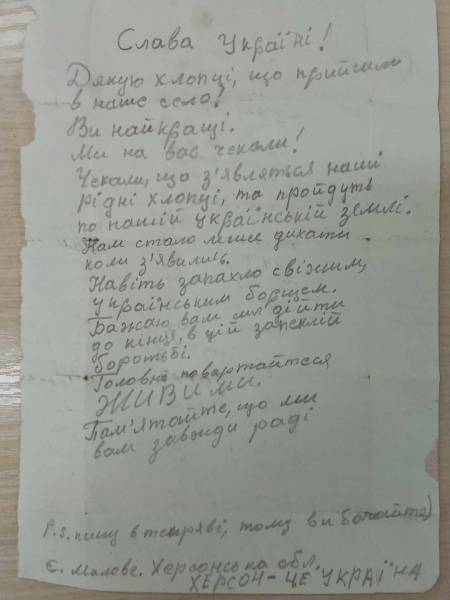 Слава Україні!
Дякую хлопці, що прийшли
в наше село!
Ви найкращі.
Ми на вас чекали!
Чекали, що з'являться наші
рідні хлопці, та пройдуть
по нашій українській землі.
Нам стало легше дихати
коли з'явились.
Навіть запахло свіжим,
українським борщем.
Бажаю вам сил дійти
до кінця, в цій запеклій
боротьбі.
Головне повертайтеся
ЖИВИМИ.
Пам'ятайте, що ми
вам завжди раді
P.S. пишу в темряві, тому вибачайте)
с. Малове. Херсонська обл.
ХЕРСОН - ЦЕ "УКРАЇНА